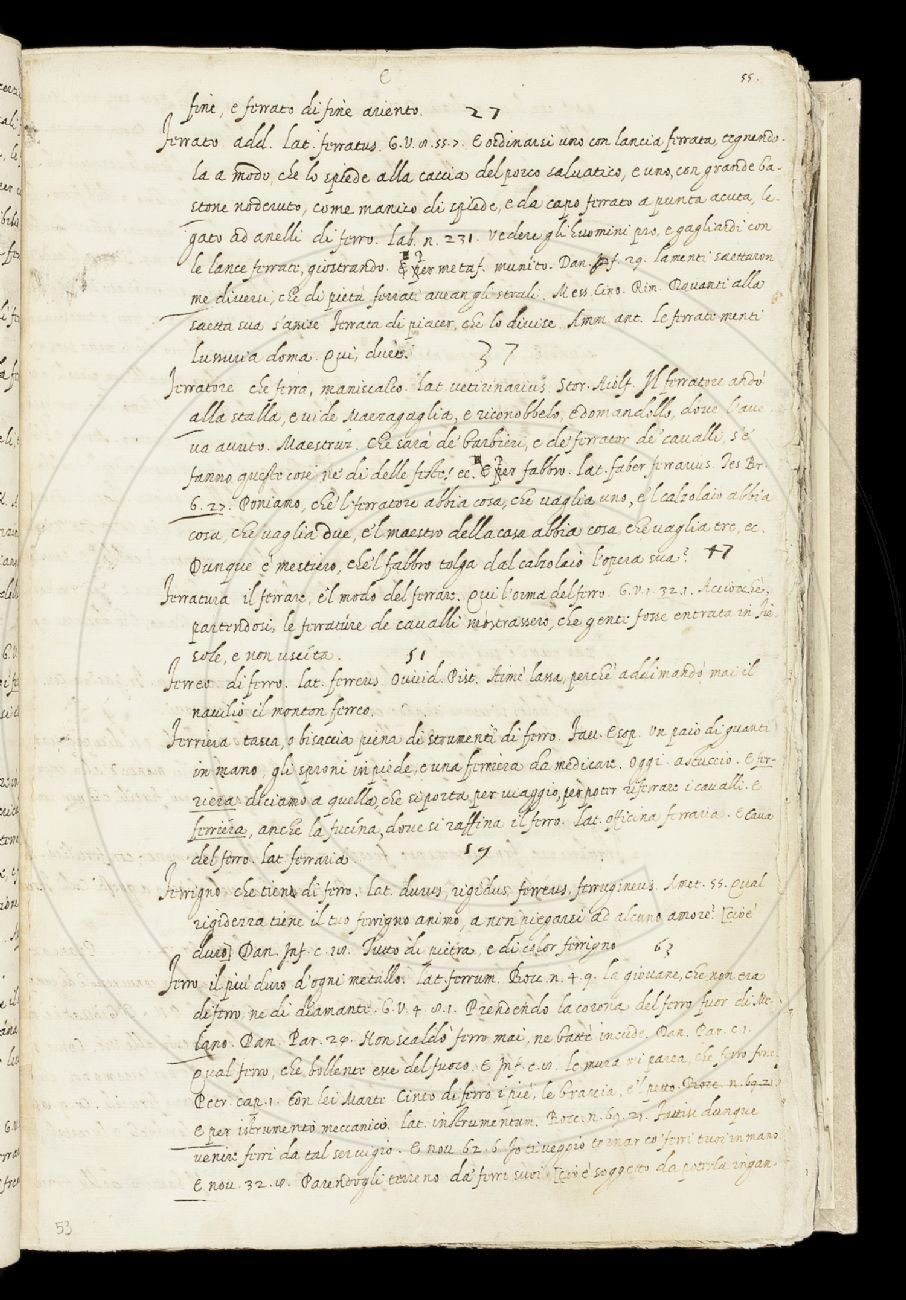 C
55.
fine, e ferrato di fine ariento. 27
Ferrato add. lat. ferratus. G. V. 8. 55. 7. E ordinarsi uno con lancia ferrata, tegnendo-
la a modo, che lo spiede alla caccia del porco salvatico, e uno, con grande ba-
stone noderuto, come manico di spiede, e da capo ferrato a punta acuta, le-
gato ad anelli di ferro. Lab. n. 231. Vedere gli huomini pro, e gagliardi con
le lance ferrate, giostrando. E per metaf. munito. Dan. Inf. 29. lamenti saettaron
me diversi, che di pietà ferrati avean gli strali. Mess. Cino. Rim. Quanti alla
saetta sua s'avise ferrata di piacer, che lo divise. Amm. ant. Le ferrate menti
lussuria doma. Qui, dure. 37
Ferratore che ferra, maniscalco. lat. veterinarius. Stor. Aiolf. Il ferratore andò
alla stalla, e vide Marzagaglia, e riconobbelo, e domandollo, dove l'ave-
va avuto. Maestruz. Che sarà de' barbieri, e de' ferrator de' cavalli, s'e'
fanno queste cose ne' dì delle feste? ec. E per fabbro. lat. faber ferrarius. Tes. Br.
6. 27. Poniamo, che 'l ferratore abbia cosa, che vaglia uno, e 'l calzolaio abbia
cosa, che vaglia due, e 'l maestro della casa abbia cosa, che vaglia tre, ec.
Dunque è mestiero, che 'l fabbro tolga dal calzolaio l'opera sua? 47
Ferratura il ferrare, e 'l modo del ferrare. Qui l'orma del ferro. G. V. 1. 32. 1. Acciocche,
partendosi, le ferrature de cavalli mostrassero, che gente fosse entrata in Fie-
sole, e non uscita. 51
Ferreo di ferro. lat. ferreus. Ovvid. Pist. Aimè lassa, perchè addimandò mai il
navilio il monton ferreo.
Ferriera tasca, o bisaccia piena di strumenti di ferro. Fav. Esop. Un paio di guanti
in mano, gli sproni in piede, e una ferriera da medicare. Oggi astuccio. E fer-
riera diciamo a quella, che si porta per viaggio, per poter riferrare i cavalli. E
ferriera, anche la fucina, dove si raffina il ferro. Lat. officina ferraria. E cava
del ferro. lat. ferraria 59
Ferrigno che tiene di ferro. lat. durus, rigidus, ferreus, ferrugineus. Amet. 55. Qual
rigidezza tiene il tuo ferrigno animo, a non piegarsi ad alcuno amore? [cioè
duro] Dan. Inf. c. 18. Tutto di pietra, e di color ferrigno 63
Ferro il più duro d'ogni metallo. lat. ferrum. Bocc. n. 4. 9. La giovane, che non era
di ferro, ne di diamante. G. V. 4. 8. 1. Prendendo la corona del ferro fuor di Me-
lano. Dan. Par. 28. Non scaldò ferro mai, ne battè incude. Dan. Par. c. 1.
Qual ferro, che bollente esce del fuoco. E Inf. c. 8. Le mura mi parea, che ferro fosse
Petr. cap. 1. Con lei Marte Cinto di ferro i piè, le braccia, e 'l petto. Bocc. n. 69. 21.
E per istrumento meccanico. lat. instrumentum. Bocc. n. 69. 25. Fattisi dunque
venire ferri da tal servigio. E nov. 62. 6. Io ti veggio tornar co' ferri tuoi in mano.
E nov. 32. 8. Parendogli terreno da' ferri suoi, [cioè soggetto da poterla ingan-
53